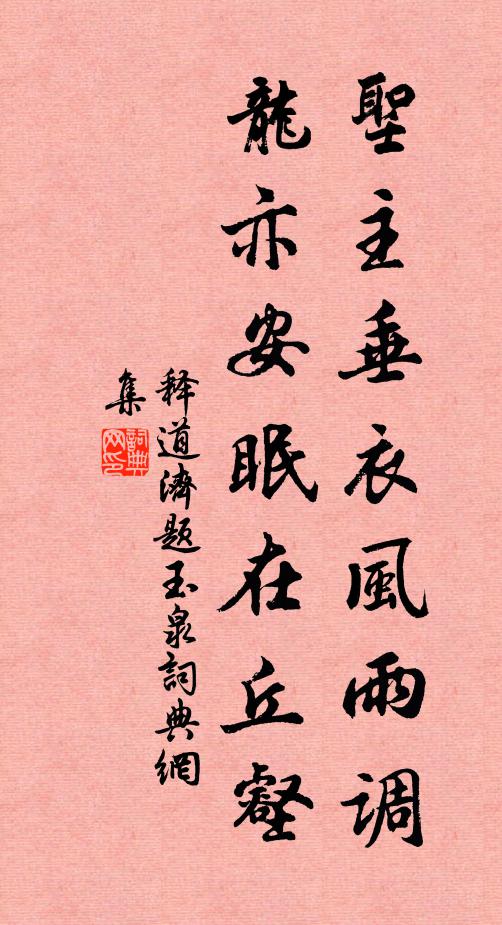 聖主垂衣風雨调
龍亦安眠在丘壑
释道濟題玉泉詞典網
集
詞典
网印